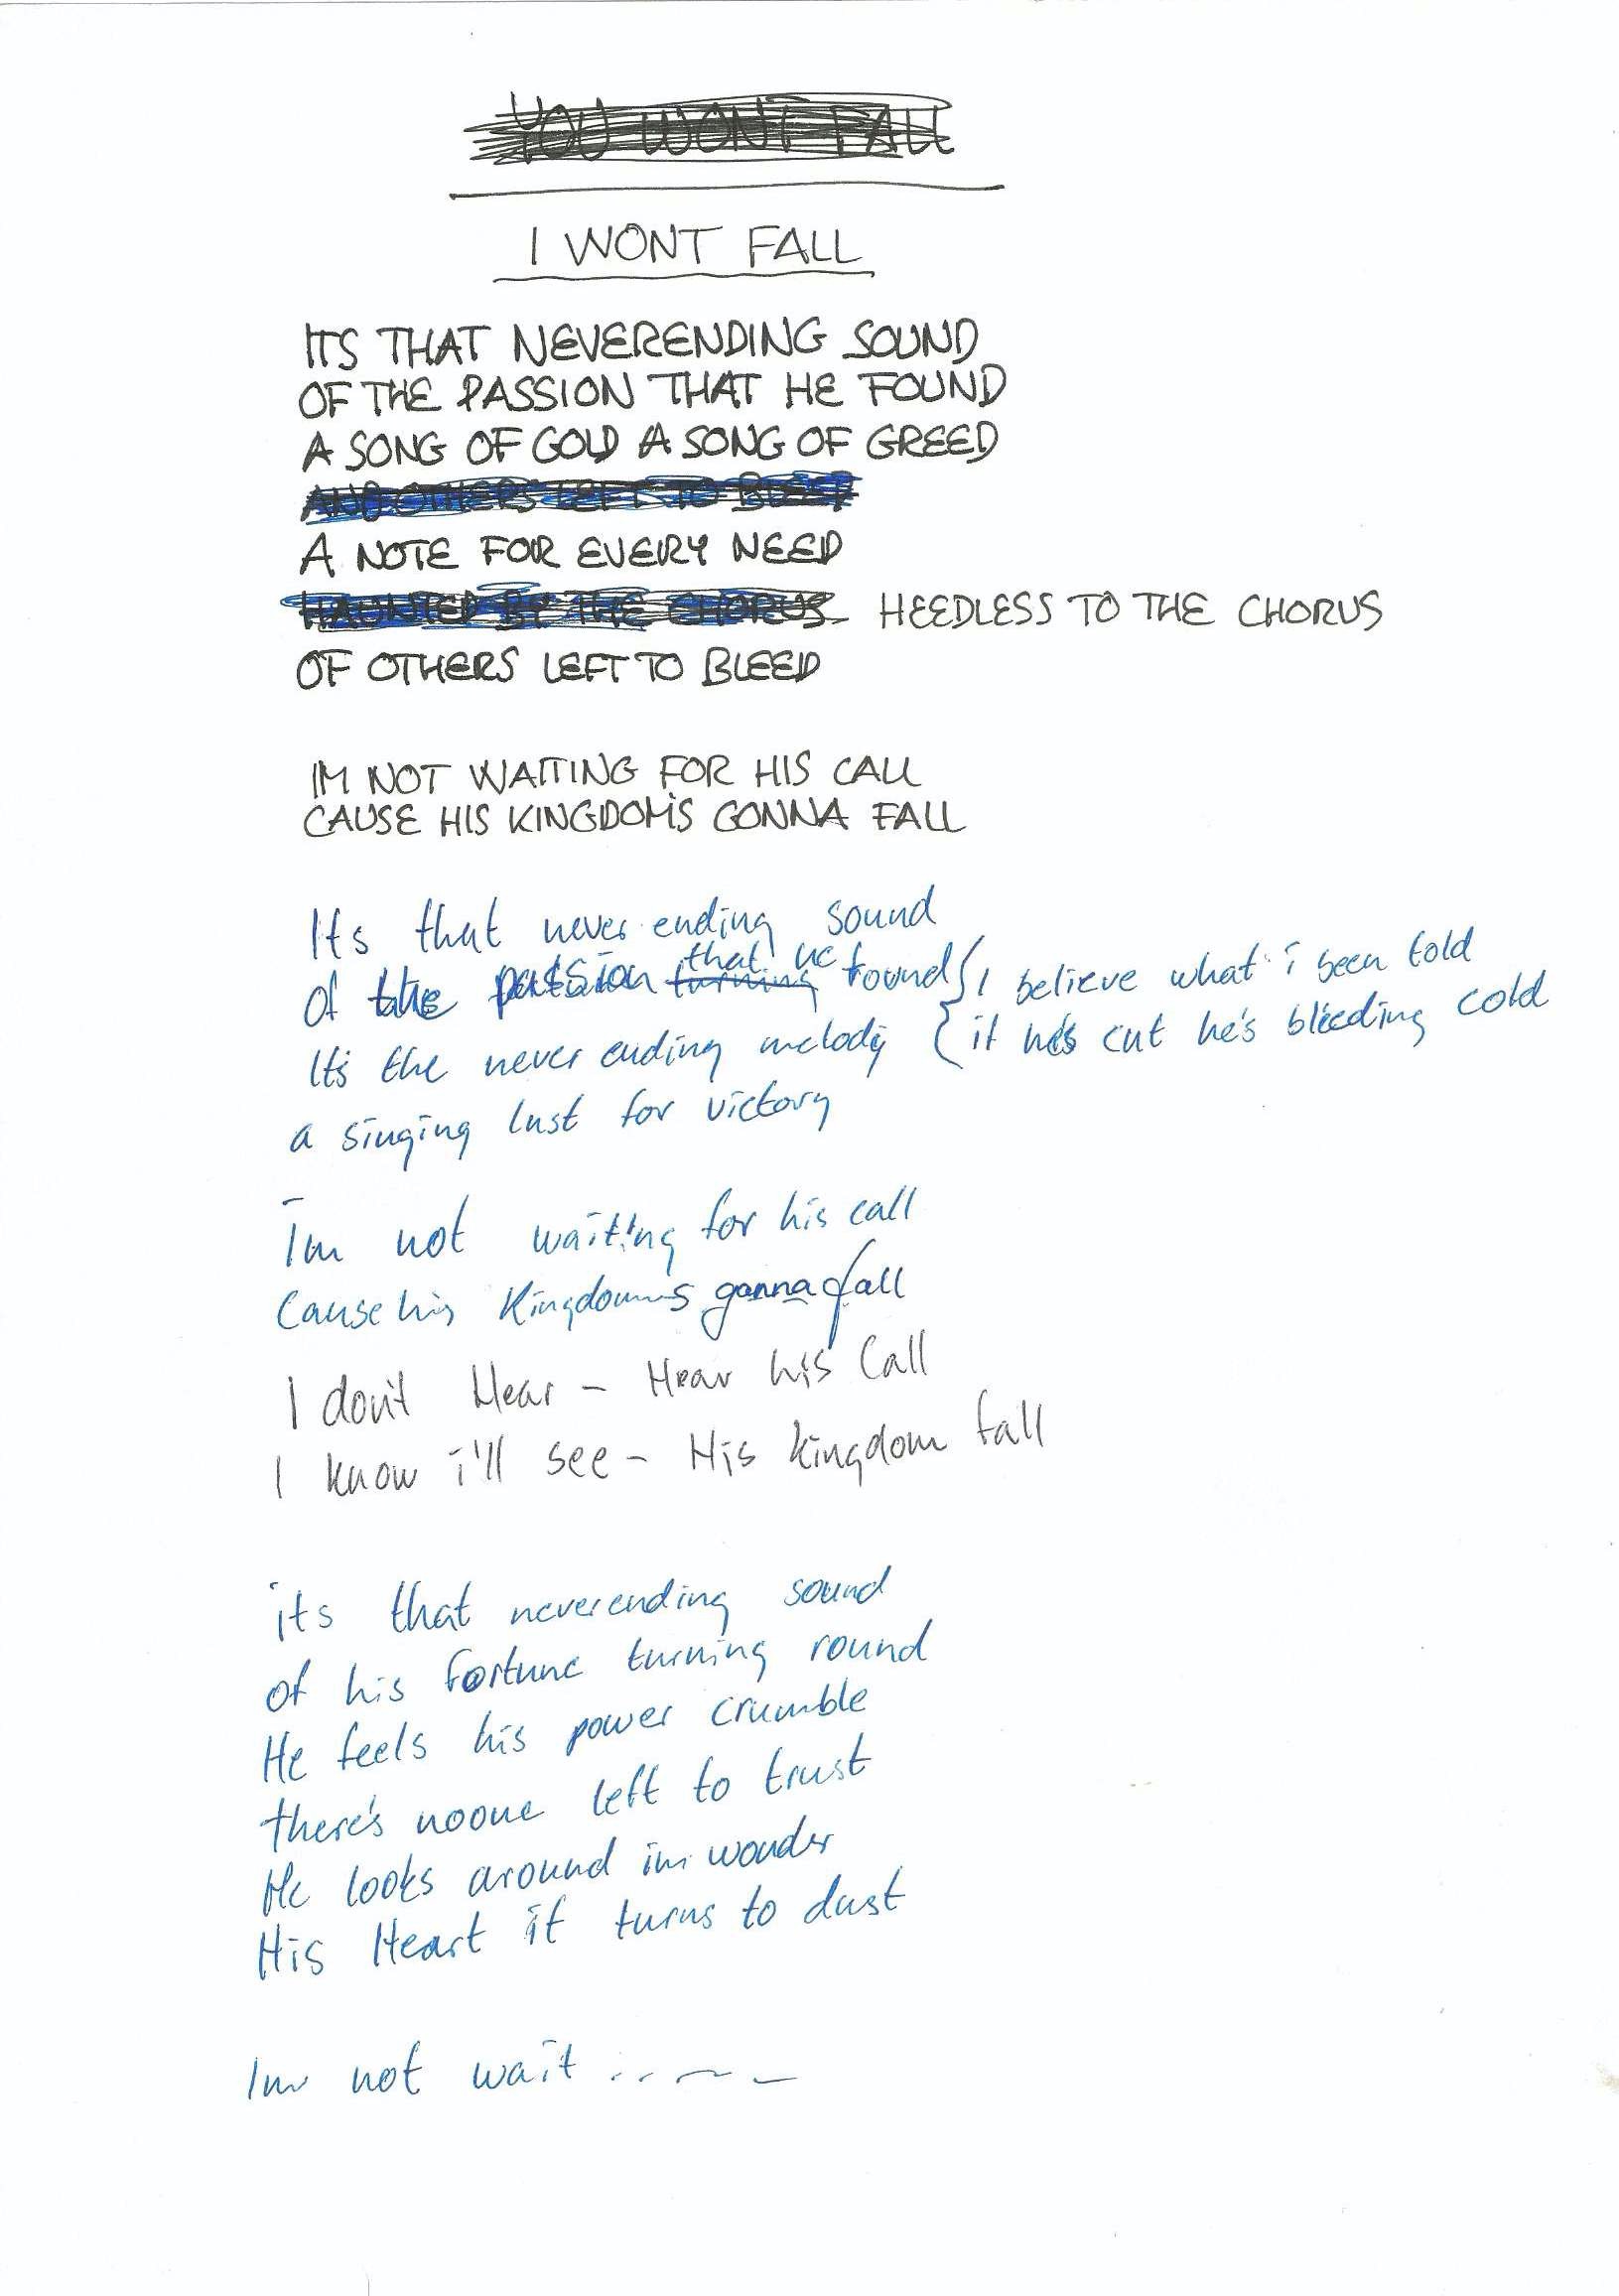 YOU WONT FALL
I WONT FALL
ITS THAT NEVERENDING SOUND
OF THE PASSION THAT HE FOUND
A SONG OF GOLD A SONG OF GREED
AND OTHERS LEFT TO BLEED
A NOTE FOR EVERY NEED
HAUNTED BY THE CHORUS HEEDLESS TO THE CHORUS
OF OTHERS LEFT TO BLEED
IM NOT WAITING FOR HIS CALL
CAUSE HIS KINGDOM'S GONNA FALL
Its that never ending sound
of the passion turning that he found { I believe what i been told
It's the never ending melody { if he's cut he's bleeding cold
a singing lust for victory
Im not waiting for his call
Cause his Kingdoms gonna fall
I don't Hear - Hear his Call
I know i'll see - His kingdom fall
its that neverending sound
of his fortune turning round
He feels his power crumble
there's noone left to trust
He looks around in wonder
His Heart it turns to dust
Im not wait .. - -